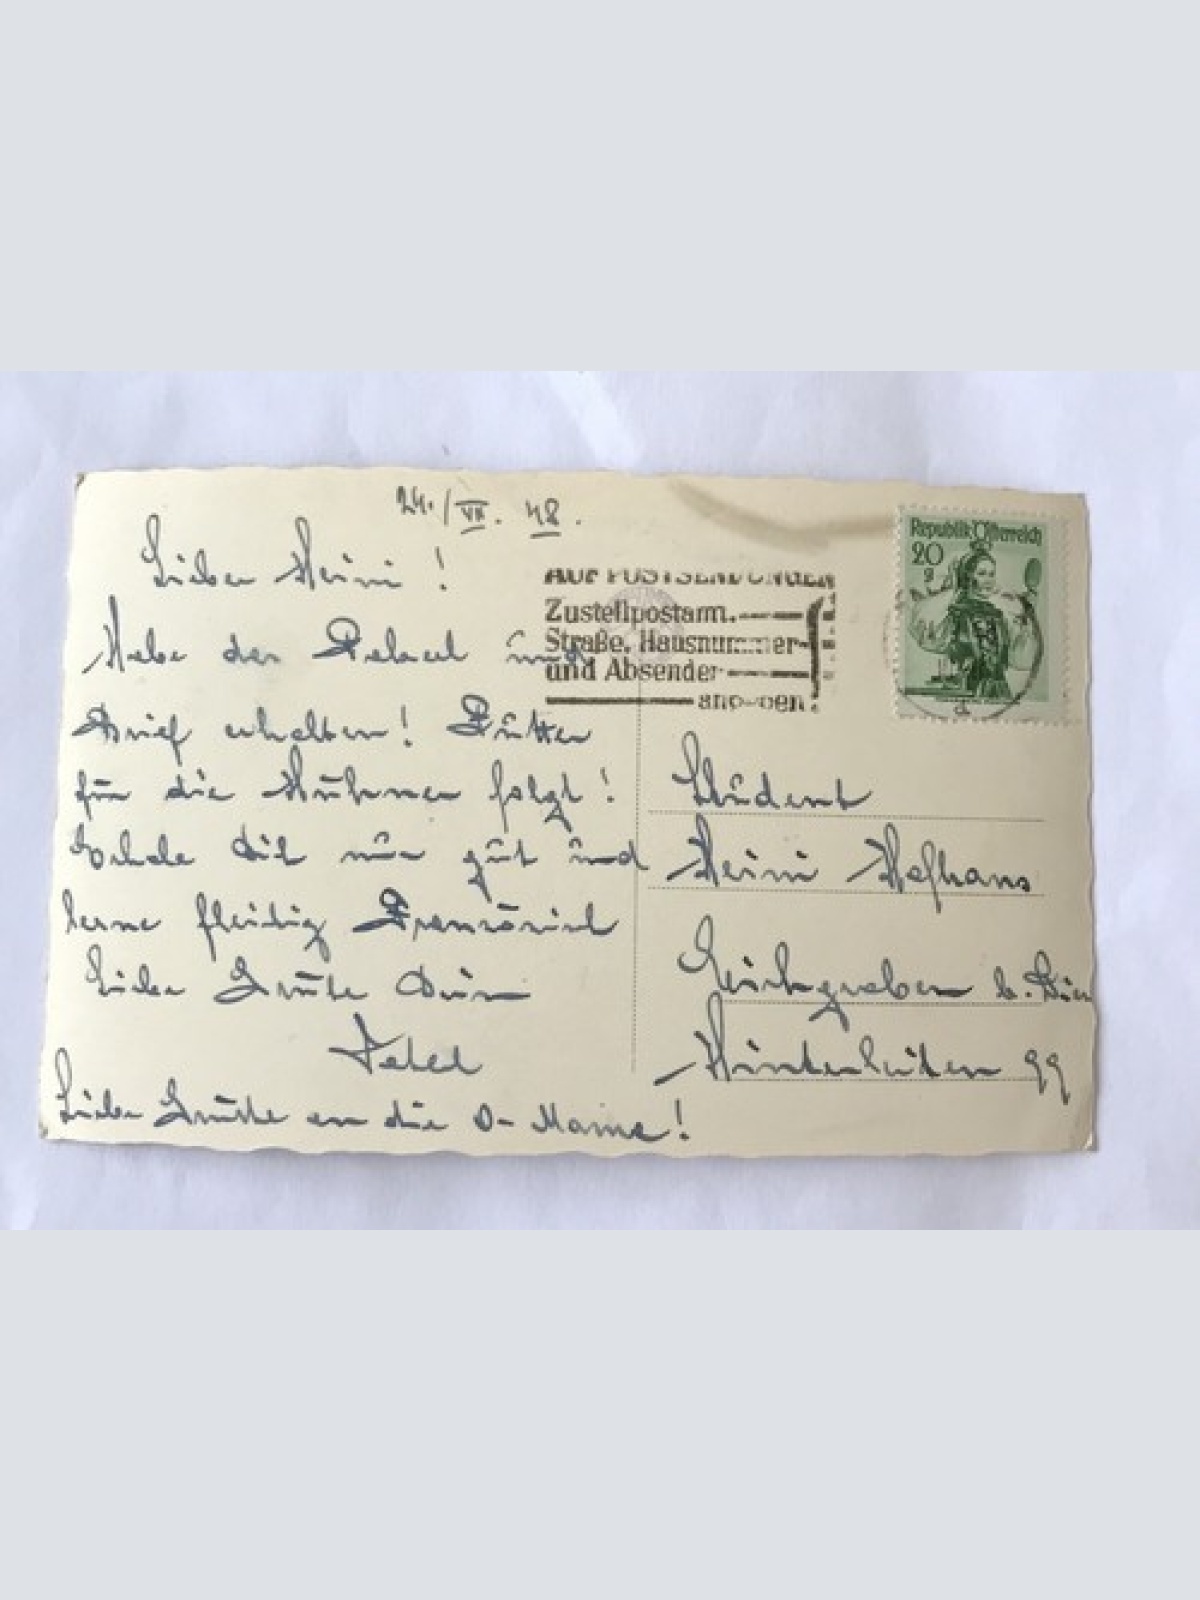 24./VII. 48.
Lieber Heini!
Habe das Paket und
Brief erhalten! Futter
für die Hühner folgt!
Erhole Dich nur gut und
lerne fleißig Französisch
Liebe Grüße Dein
Liebe Grüße an die O-Mama!
AUF POSTSENDUNGEN
Zustellpostamt,
Straße, Hausnummer
und Absender
angeben!
Republik Österreich
20
g
Student
Heini Hofhans
b. Wien
Hinterleiten 99